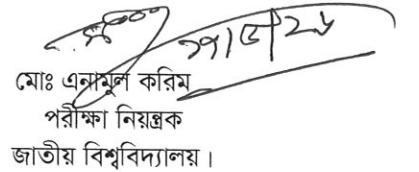 মোঃ এনামুল করিম
পরীক্ষা নিয়ন্ত্রক
জাতীয় বিশ্ববিদ্যালয়।